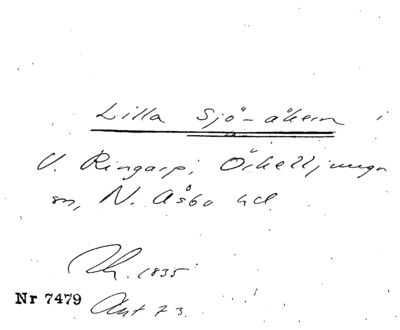 Lilla Sjö-åkern i
V. Ringarp, Örkelljunga
sn, N. Åsbo hd
1835
Nr 7479 Akt 73.